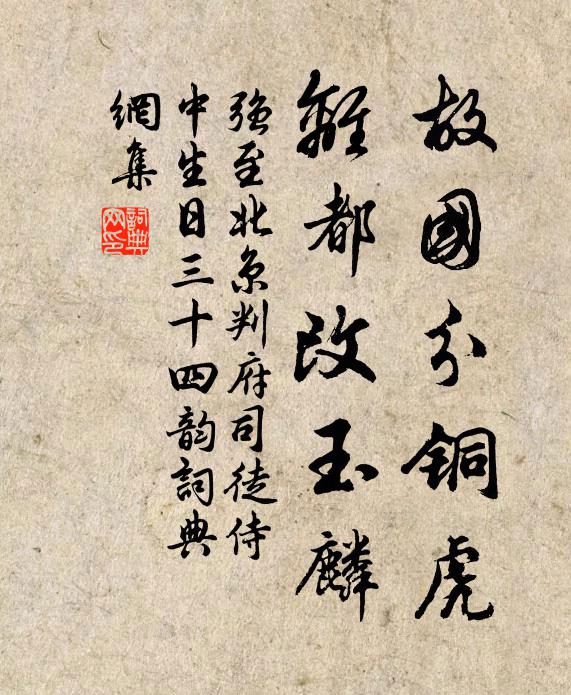 故國分銅虎
離都改玉麟
強至北京判府司徒侍
中生日三十四韵詞典
網集
詞典网印